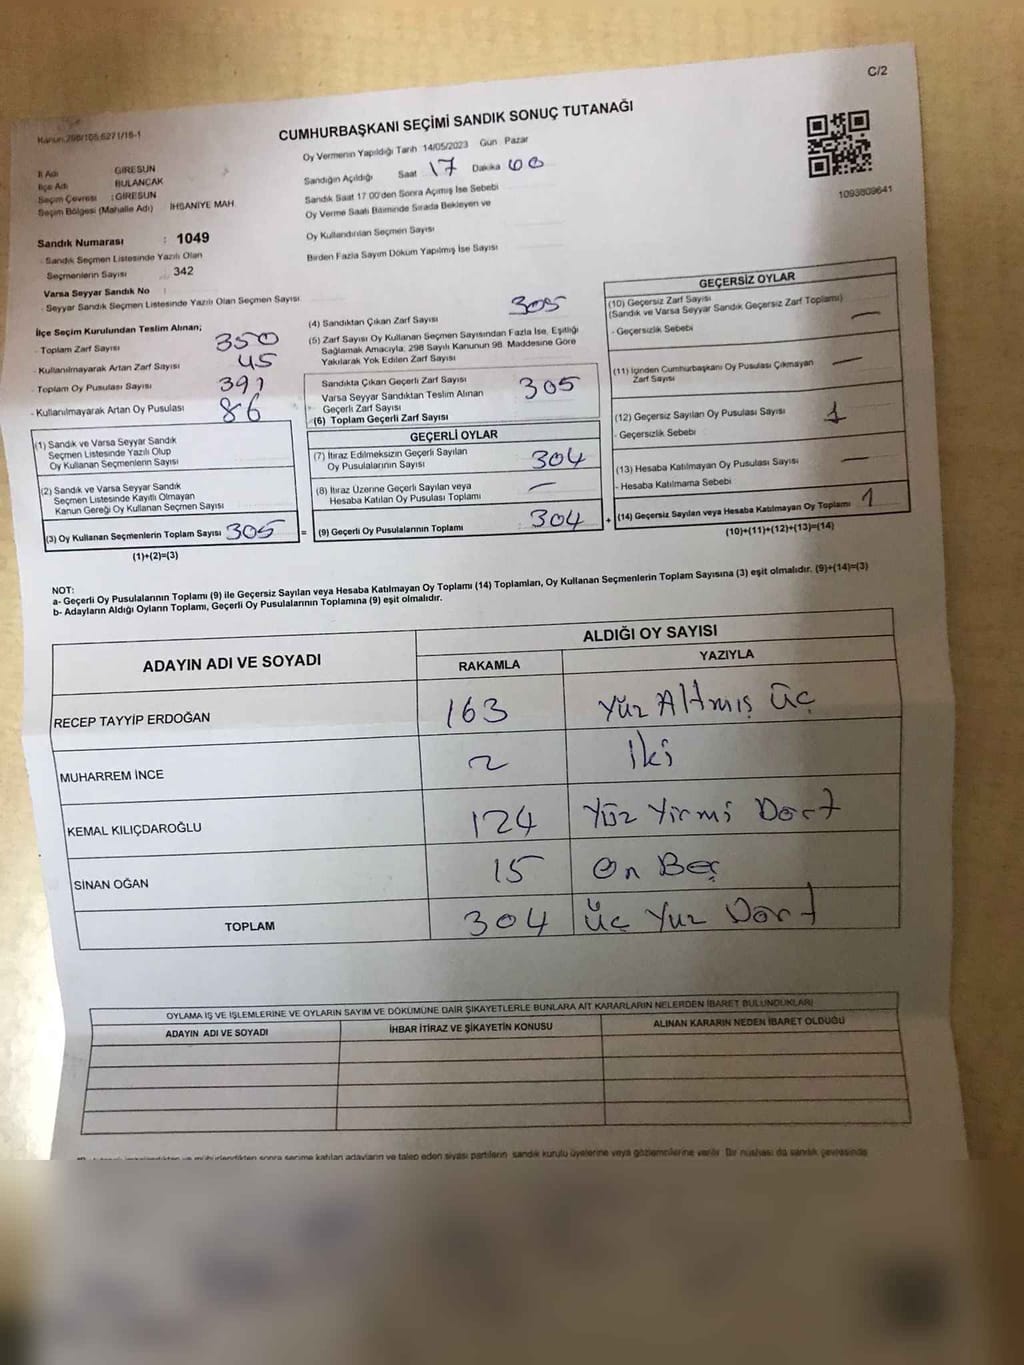 C/2
Kanun 298/105,6271/16-1
CUMHURBAŞKANI SEÇİMİ SANDIK SONUÇ TUTANAĞI
İl Adı GİRESUN
İlçe Adı BULANCAK
Seçim Çevresi : GİRESUN
Seçim Bölgesi (Mahalle Adı) İHSANİYE MAH.
Oy Vermenin Yapıldığı Tarih 14/05/2023 Gün Pazar
Sandığın Açıldığı Saat 17 Dakika 00
Sandık Saat 17.00'den Sonra Açımış İse Sebebi
Oy Verme Saati Bitiminde Sırada Bekleyen ve
Oy Kullandırılan Seçmen Sayısı
Birden Fazla Sayım Döküm Yapılmış İse Sayısı
1093809641
Sandık Numarası : 1049
- Sandık Seçmen Listesinde Yazılı Olan
Seçmenlerin Sayısı : 342
Varsa Seyyar Sandık No :
- Seyyar Sandık Seçmen Listesinde Yazılı Olan Seçmen Sayısı
İlçe Seçim Kurulundan Teslim Alınan;
- Toplam Zarf Sayısı 350
- Kullanılmayarak Artan Zarf Sayısı 45
- Toplam Oy Pusulası Sayısı 391
- Kullanılmayarak Artan Oy Pusulası 86
(1) Sandık ve Varsa Seyyar Sandık
Seçmen Listesinde Yazılı Olup
Oy Kullanan Seçmenlerin Sayısı
(2) Sandık ve Varsa Seyyar Sandık
Seçmen Listesinde Kayıtlı Olmayan
Kanun Gereği Oy Kullanan Seçmen Sayısı
(3) Oy Kullanan Seçmenlerin Toplam Sayısı 305
(1)+(2)=(3)
(4) Sandıktan Çıkan Zarf Sayısı 305
(5) Zarf Sayısı Oy Kullanan Seçmen Sayısından Fazla İse, Eşitliği
Sağlamak Amacıyla, 298 Sayılı Kanunun 98. Maddesine Göre
Yakılarak Yok Edilen Zarf Sayısı
Sandıkta Çıkan Geçerli Zarf Sayısı
Varsa Seyyar Sandıktan Teslim Alınan 305
Geçerli Zarf Sayısı
(6) Toplam Geçerli Zarf Sayısı
GEÇERLİ OYLAR
(7) İtiraz Edilmeksizin Geçerli Sayılan
Oy Pusulalarının Sayısı 304
(8) İtiraz Üzerine Geçerli Sayılan veya
Hesaba Katılan Oy Pusulası Toplamı —
= (9) Geçerli Oy Pusulalarının Toplamı 304
GEÇERSİZ OYLAR
(10) Geçersiz Zarf Sayısı
(Sandık ve Varsa Seyyar Sandık Geçersiz Zarf Toplamı) —
- Geçersizlik Sebebi
(11) İçinden Cumhurbaşkanı Oy Pusulası Çıkmayan
Zarf Sayısı —
(12) Geçersiz Sayılan Oy Pusulası Sayısı 1
- Geçersizlik Sebebi
(13) Hesaba Katılmayan Oy Pusulası Sayısı —
- Hesaba Katılmama Sebebi
+ (14) Geçersiz Sayılan veya Hesaba Katılmayan Oy Toplamı 1
(10)+(11)+(12)+(13)=(14)
NOT:
a- Geçerli Oy Pusulalarının Toplamı (9) ile Geçersiz Sayılan veya Hesaba Katılmayan Oy Toplamı (14) Toplamları, Oy Kullanan Seçmenlerin Toplam Sayısına (3) eşit olmalıdır. (9)+(14)=(3)
b- Adayların Aldığı Oyların Toplamı, Geçerli Oy Pusulalarının Toplamına (9) eşit olmalıdır.
ADAYIN ADI VE SOYADI ALDIĞI OY SAYISI
RAKAMLA YAZIYLA
RECEP TAYYİP ERDOĞAN 163 Yüz Altmış üç
MUHARREM İNCE 2 İki
KEMAL KILIÇDAROĞLU 124 Yüz Yirmi Dört
SİNAN OĞAN 15 On Beş
TOPLAM 304 Üç Yüz Dört
OYLAMA İŞ VE İŞLEMLERİNE VE OYLARIN SAYIM VE DÖKÜMÜNE DAİR ŞİKAYETLERLE BUNLARA AİT KARARLARIN NELERDEN İBARET BULUNDUKLARI
ADAYIN ADI VE SOYADI İHBAR İTİRAZ VE ŞİKAYETİN KONUSU ALINAN KARARIN NEDEN İBARET OLDUĞU
mühürlendikten sonra seçime katılan adayların ve talep eden siyasi partilerin sandık kurulu üyelerine veya gözlemcilerine verilir. Bir nüshası da sandık çevresinde